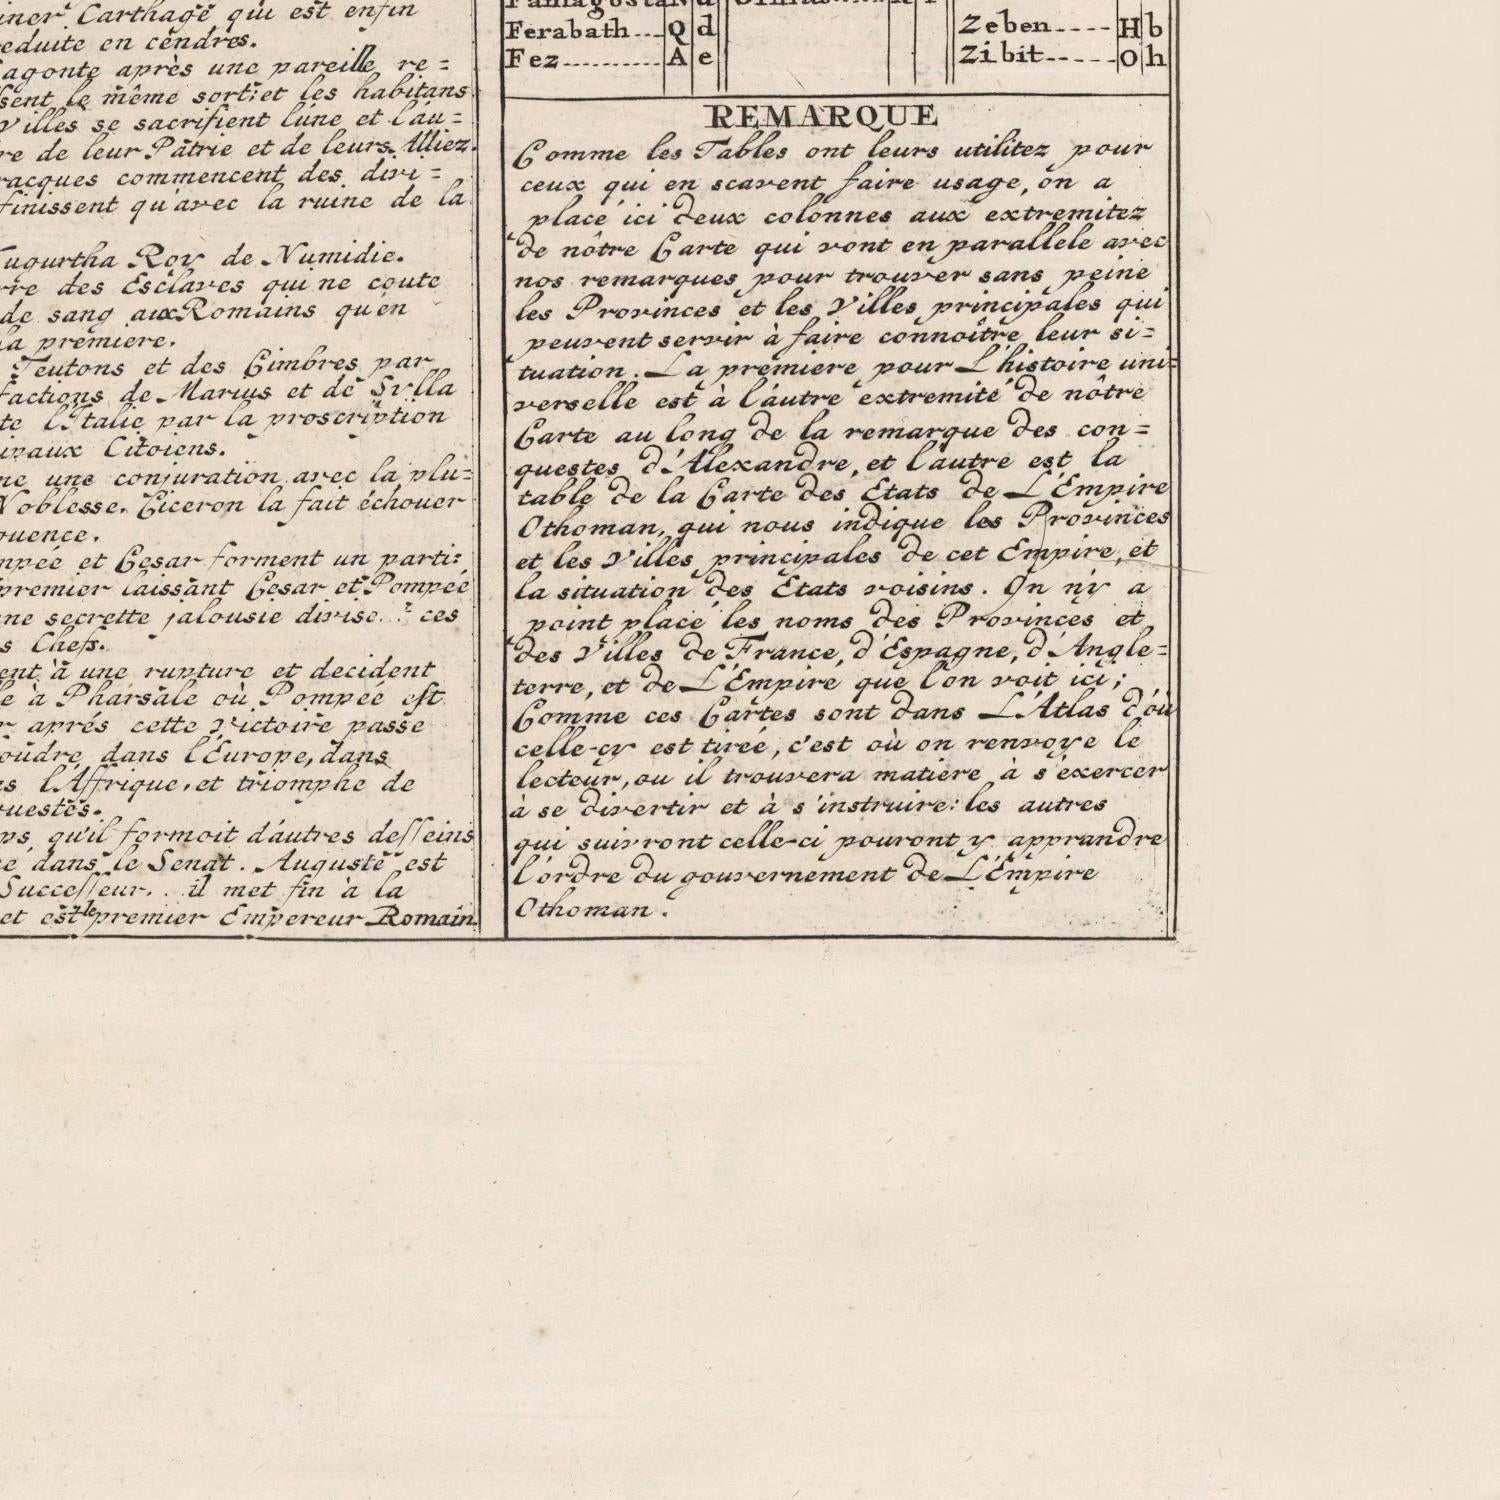 iner.t Carthage qui est enfin
reduite en cendres.
agonte après une pareille re=
sent le même sort: et les habitans
villes se sacrifient l'une et l'au=
re de leur Patrie et de leurs Alliez.
racques commencent des divi=
finissent qu'avec la ruine de la
Jugurtha Roy de Numidie.
rre des Esclaves qui ne coute
de sang aux Romains qu'en
la premiere.
Teutons et des Cimbres par
factions de Marius et de Sylla
te l'Italie par la proscription
ipaux Citoiens.
ne une conjuration avec la plu=
Noblesse. Ciceron la fait échouer
quence.
mpée et Cesar forment un parti:
premier laissant Cesar et Pompeé
ne secrette jalousie divise ces
s Chefs.
ent à une rupture et decident
le à Pharsale où Pompée est
r aprés cette victoire passe
oudre dans l'Europe, dans
s l'Affrique, et triomphe de
questes.
ps, qu'il formoit d'autres desseins
é dans le Senat. Auguste est
Successeur. il met fin à la
et est le premier Empereur Romain
Famagosta N d
Ferabath Q d
Fez A e
Zeben H b
Zibit O h
REMARQUE
Comme les Tables ont leurs utilitez pour
ceux qui en scavent faire usage, on a
placé ici deux colonnes aux extremitez
de nôtre Carte qui vont en parallele avec
nos remarques pour trouver sans peine
les Provinces et les Villes principales qui
peuvent servir à faire connoître leur si=
tuation. La premiere pour L'histoire uni=
verselle est à l'autre extremité de nôtre
Carte au long de la remarque des con=
questes d'Alexandre, et l'autre est la
table de la Carte des Etats de L'Empire
Othoman, qui nous indique les Provinces
et les Villes principales de cet Empire, et
la situation des Etats voisins. On n'y a
point placé les noms des Provinces et
des Villes de France, d'Espagne, d'Angle=
terre, et de L'Empire que l'on voit ici;
Comme ces Cartes sont dans L'Atlas d'où
celle-cy est tireé, c'est où on renvoye le
lecteur, ou il trouvera matiere à s'exercer
à se divertir et à s'instruire: les autres
qui suivront celle-ci pouront y apprandre
l'ordre du gouvernement de L'Empire
Othoman.